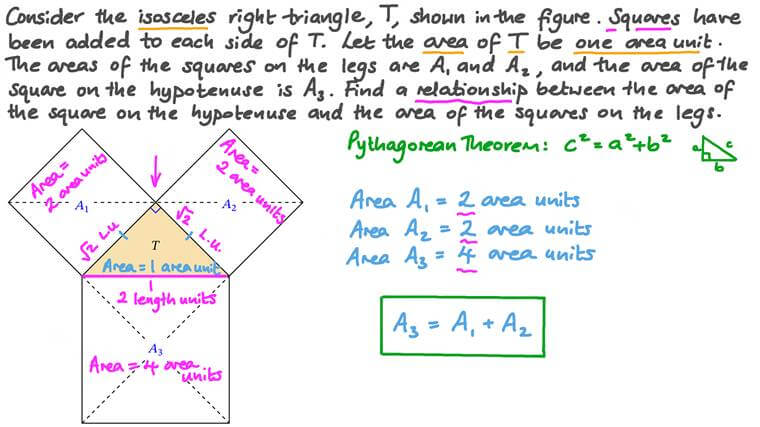 Consider the isosceles right triangle, T, shown in the figure. Squares have
been added to each side of T. Let the area of T be one area unit.
The areas of the squares on the legs are A₁ and A₂, and the area of the
square on the hypotenuse is A₃. Find a relationship between the area of
the square on the hypotenuse and the area of the squares on the legs.
Pythagorean Theorem: c² = a² + b²
a
c
b
Area =
2 area units
A₁
Area =
2 area units
A₂
√2 L.U.
√2 L.U.
T
Area = 1 area unit
2 length units
A₃
Area = 4 area
units
Area A₁ = 2 area units
Area A₂ = 2 area units
Area A₃ = 4 area units
A₃ = A₁ + A₂